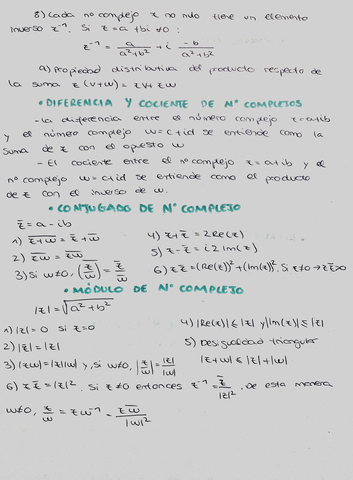 8) Cada nº complejo z no nulo tiene un elemento
inverso z⁻¹. Si z = a + bi ≠ 0 :
z⁻¹ = a/(a²+b²) + i (-b)/(a²+b²)
9) Propiedad distributiva del producto respecto de
la suma z(v+w) = zv + zw
• DIFERENCIA Y COCIENTE DE Nº COMPLEJOS
- La diferencia entre el número complejo z = a+ib
y el número complejo w = c+id se entiende como la
suma de z con el opuesto w
- El cociente entre el nº complejo z = a+ib y el
nº complejo w = c+id se entiende como el producto
de z con el inverso de w.
• CONJUGADO DE Nº COMPLEJO
z̅ = a - ib
1) \overline{z+w} = z̅ + w̅
4) z + z̅ = 2Re(z)
2) \overline{zw} = z̅w̅
5) z - z̅ = i2Im(z)
3) Si w≠0, \overline{(z/w)} = z̅/w̅
6) zz̅ = (Re(z))² + (Im(z))². Si z≠0 → zz̅>0
• MÓDULO DE Nº COMPLEJO
|z| = √(a² + b²)
1) |z| = 0 si z=0
4) |Re(z)| ≤ |z| y |Im(z)| ≤ |z|
2) |z̅| = |z|
5) Desigualdad triangular
3) |zw| = |z||w| y, si w≠0, |z/w| = |z|/|w|
|z+w| ≤ |z| + |w|
6) zz̅ = |z|². Si z ≠ 0 entonces z⁻¹ = z̅/|z|². De esta manera
w≠0, z/w = zw⁻¹ = zw̅/|w|²